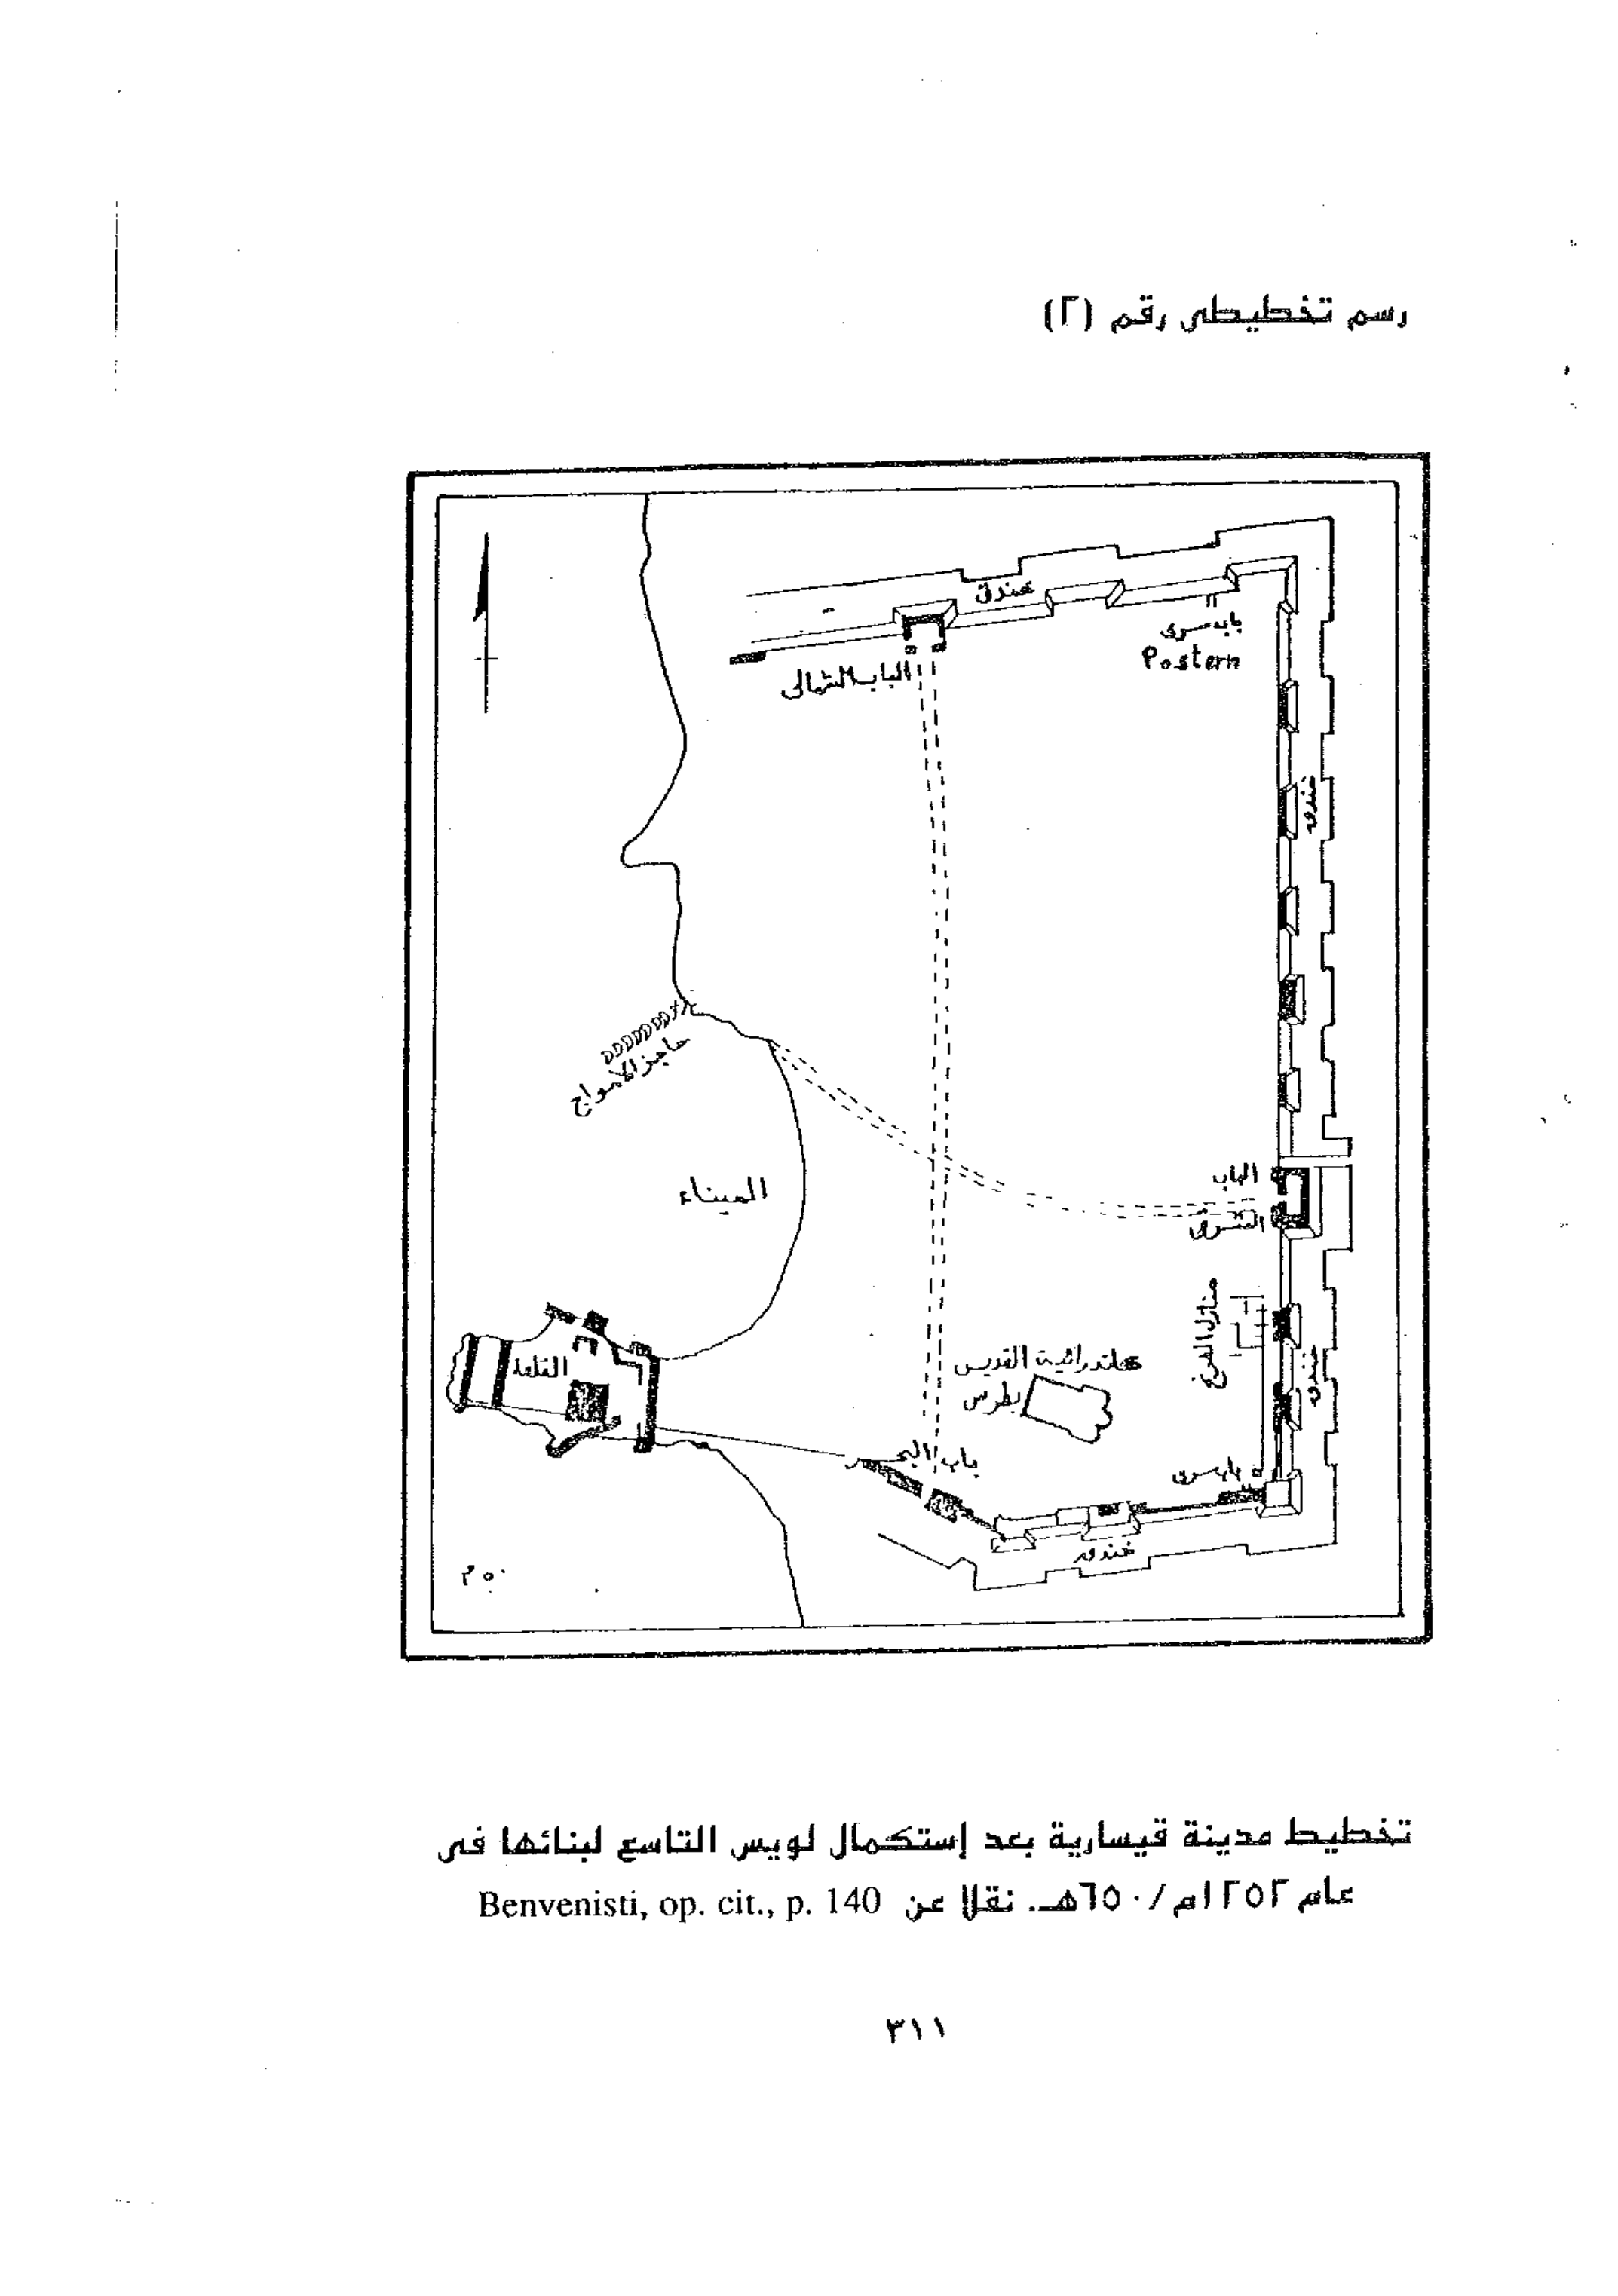 رسم تخطيطى رقم (٢)
خندق
باب سرى
Postern
الباب الشمالى
خندق
حاجز الأمواج
الميناء
الباب
الشرقى
منازل الفرنج
خندق
القلعة
كاتدرائية القديس
بطرس
باب البحر
باب سرى
خندق
٥٠ م
تخطيط مدينة قيسارية بعد إستكمال لويس التاسع لبنائها فى
عام ١٢٥٢م/٦٥٠هـ. نقلا عن Benvenisti, op. cit., p. 140
٣١١